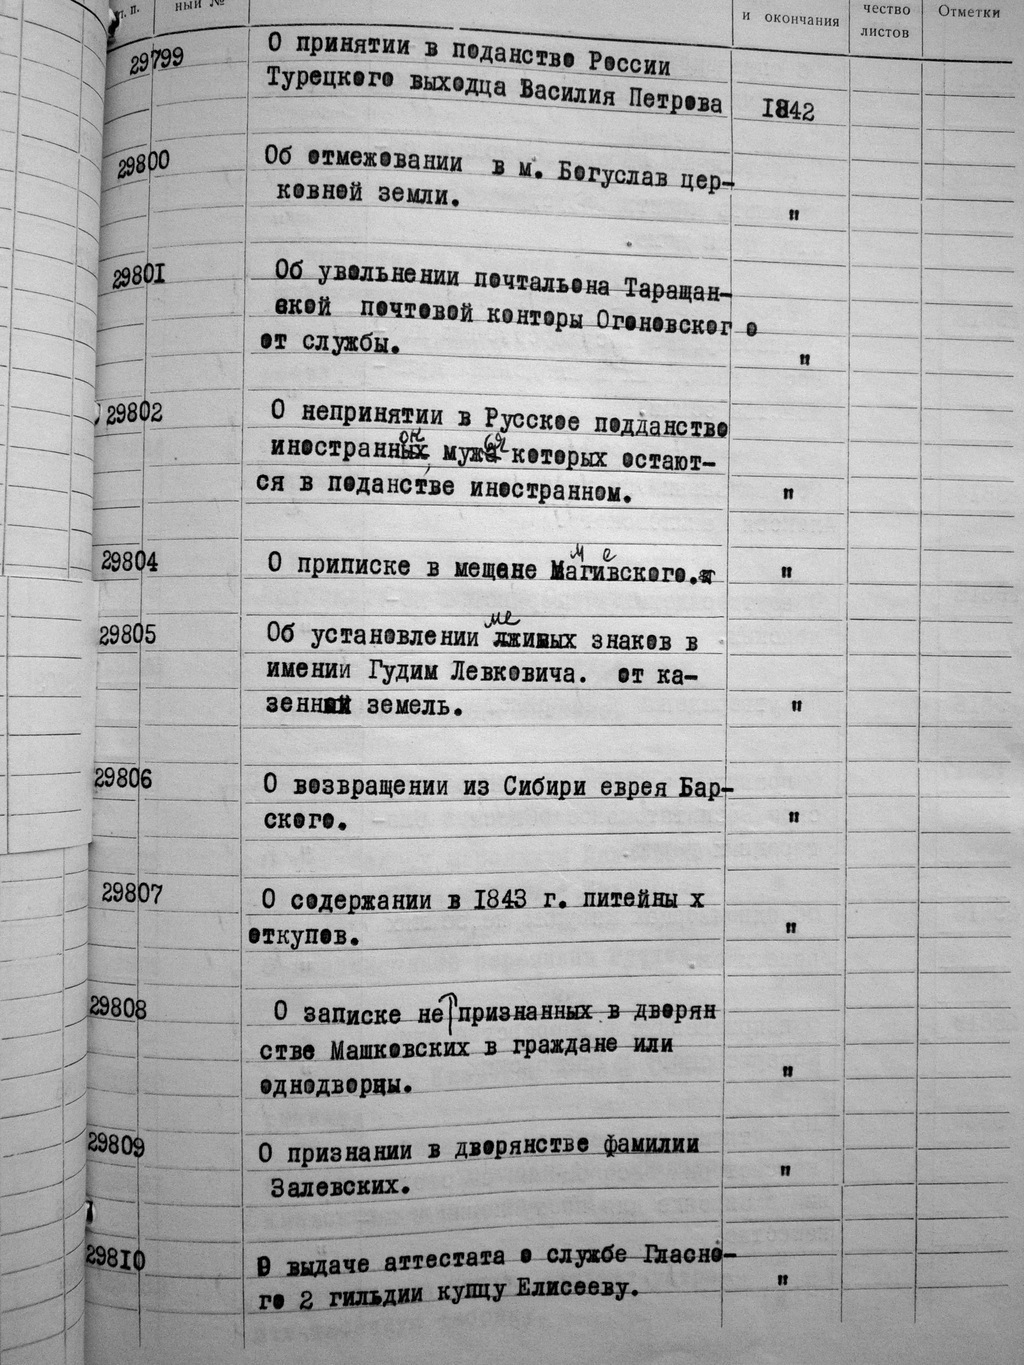 п. п.
ный №
и окончания
чество
листов
Отметки
29799
О принятии в поданство России
Турецкого выходца Василия Петрова
1842
29800
Об отмежовании в м. Богуслав цер-
ковной земли.
"
29801
Об увольнении почтальона Таращан-
ской почтовой конторы Огоновског о
от службы.
"
29802
О непринятии в Русское подданство
иностранных мужа которых остают-
ся в поданстве иностранном.
"
29804
О приписке в мещане Магивского.
"
29805
Об установлении лживых знаков в
имении Гудим Левковича. от ка-
зенной земель.
"
29806
О возвращении из Сибири еврея Бар-
ского.
"
29807
О содержании в 1843 г. питейны х
откупов.
"
29808
О записке не признанных в дворян
стве Машковских в граждане или
однодворцы.
"
29809
О признании в дворянстве фамилии
Залевских.
"
29810
О выдаче аттестата о службе Гласно-
го 2 гильдии купцу Елисееву.
"